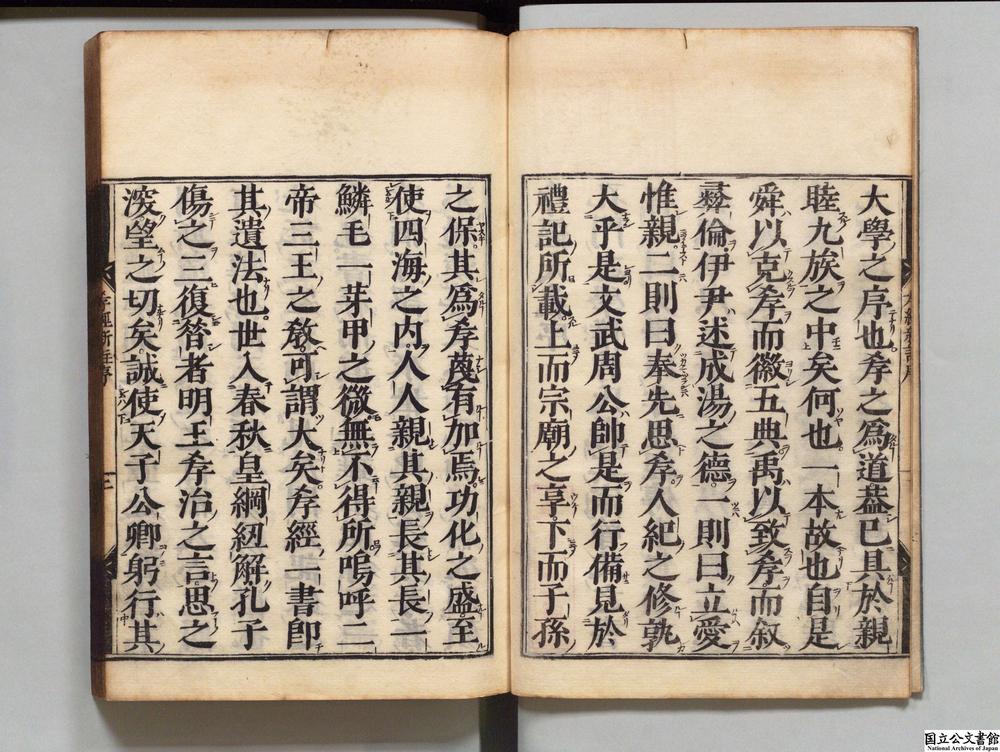 大學之序也孝之爲道蓋已具於親
睦九族之中矣何也一本故也自是
舜以克孝而徽五典禹以致孝而叙
彝倫伊尹述成湯之德一則曰立愛
惟親二則曰奉先思孝人紀之修孰
大乎是文武周公帥是而行備見於
禮記所載上而宗廟之享下而子孫
之保其爲孝蔑有加焉功化之盛至
使四海之内人人親其親長其長一
鱗毛一芽甲之微無不得所嗚呼二
帝三王之教可謂大矣孝經一書卽
其遺法也世入春秋皇綱紐解孔子
傷之三復昝者明王孝治之言思之
深望之切矣誠使天子公卿躬行其
孝經新註序
三
国立公文書館
National Archives of Japan